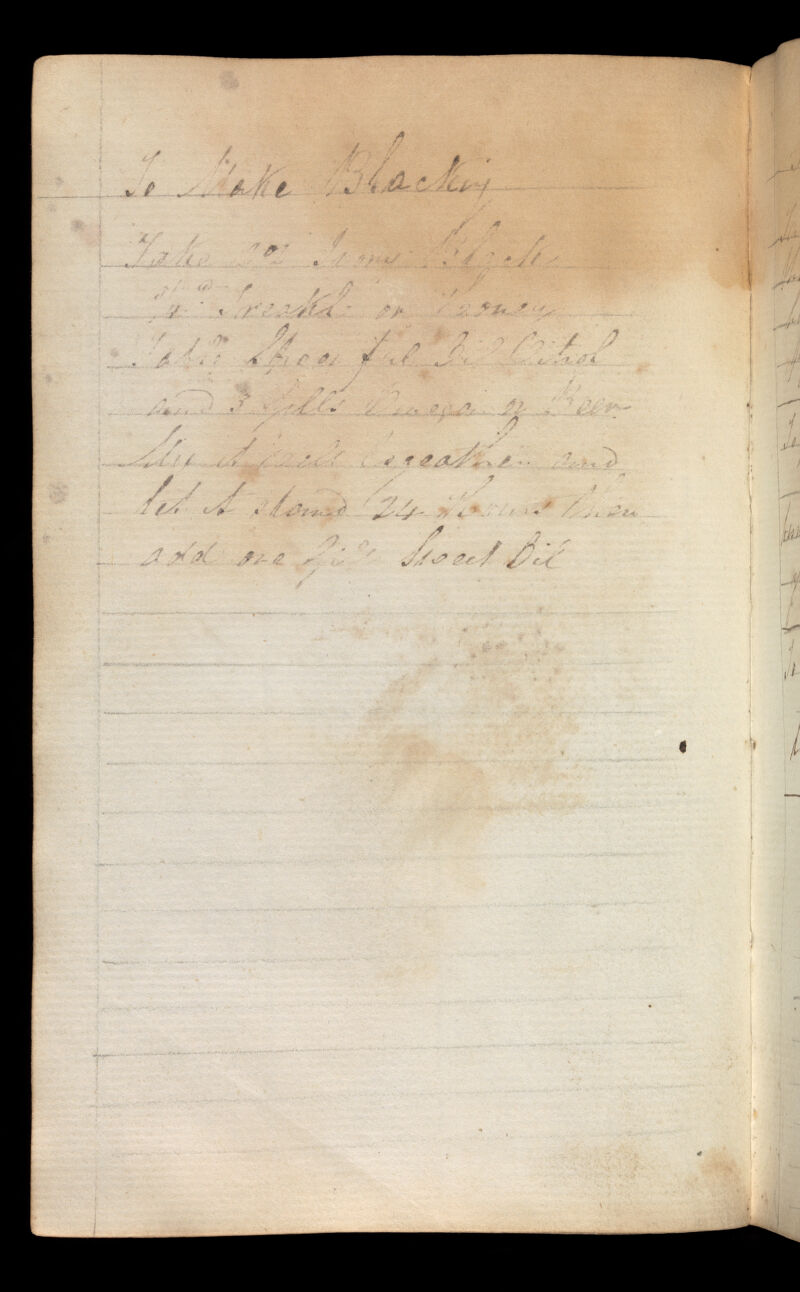 To Make Blacking
Take oz Ivory Black
Treakl or Honey
Table Spoonful Oil Vitrol
and 3 Gills Vinegar or Beer
Mix it well togeather and
let it stand 24 Hours then
add one Gill Sweet Oil